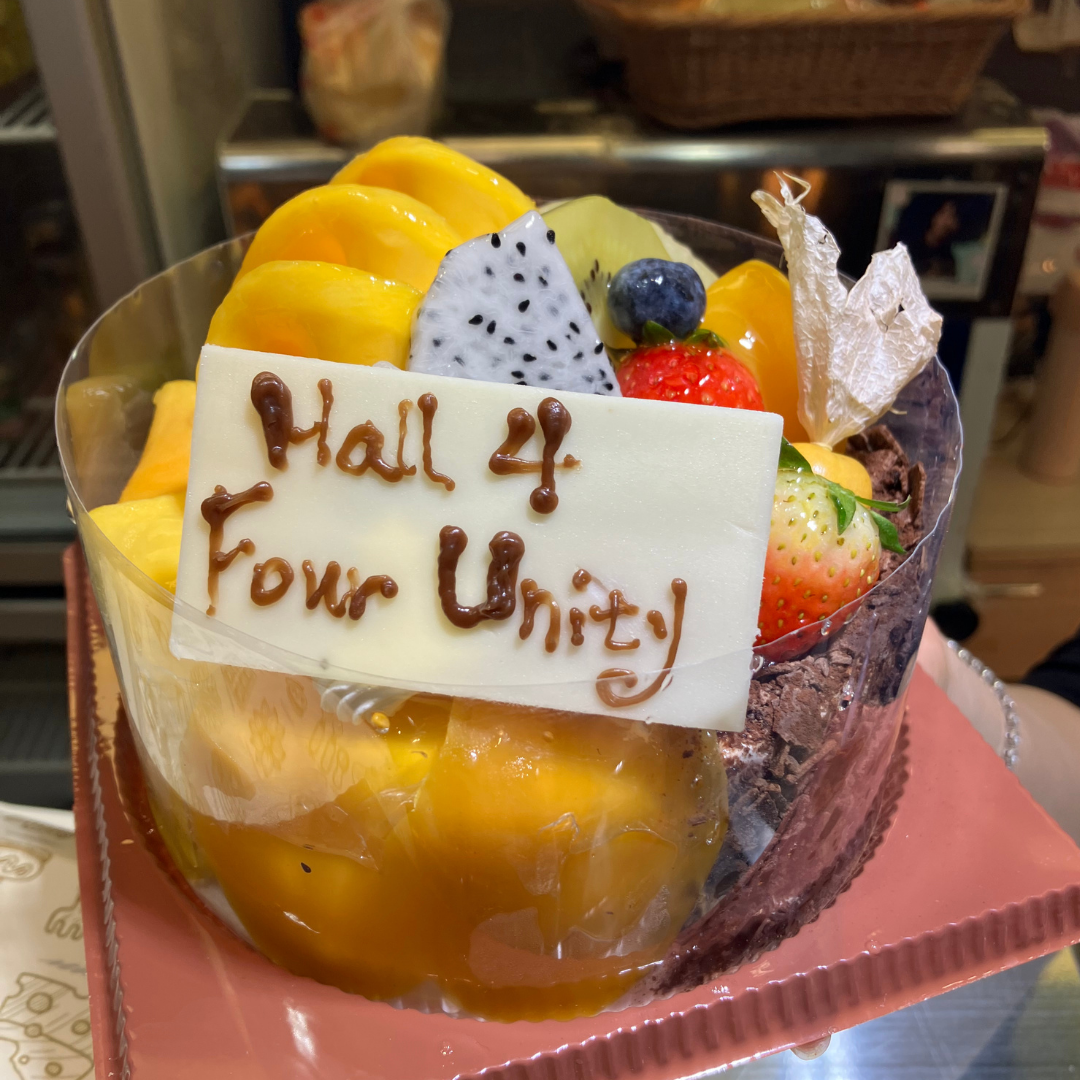 Hall 4
Four Unity